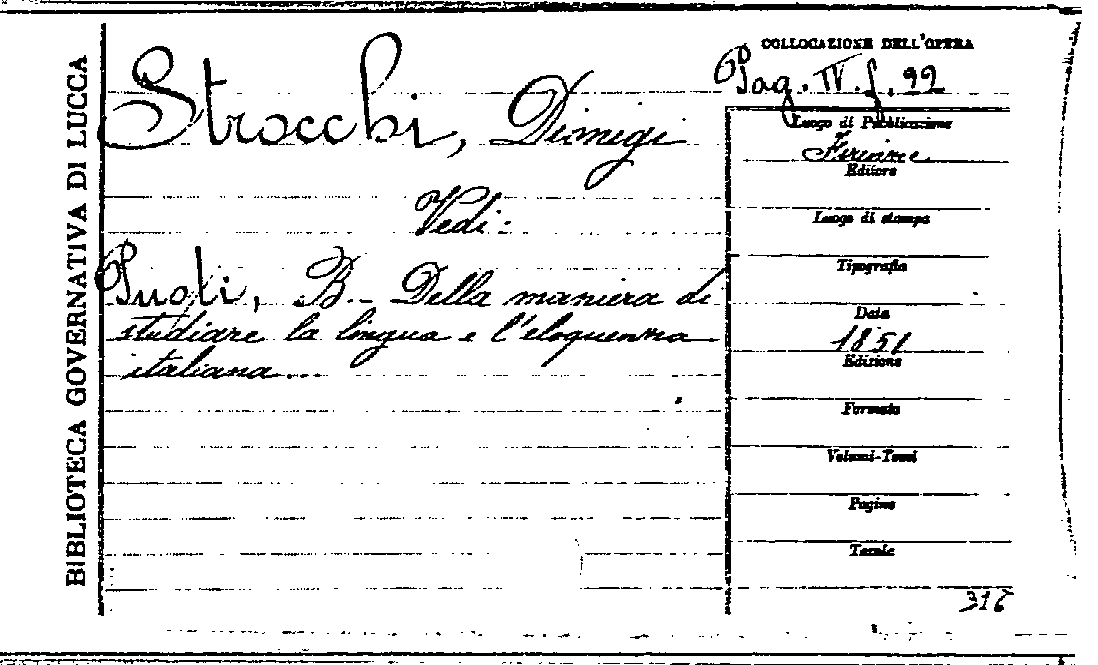 BIBLIOTECA GOVERNATIVA DI LUCCA
Strocchi, Dionigi
Vedi:
Puoti, B. - Della maniera di
studiare la lingua e l'eloquenza
italiana...
COLLOCAZIONE DELL'OPERA
Pag. IV. f. 22
Luogo di Pubblicazione
Firenze
Editore
Luogo di stampa
Tipografia
Data
1851
Edizione
Formato
Volumi-Tomi
Pagine
Tavole